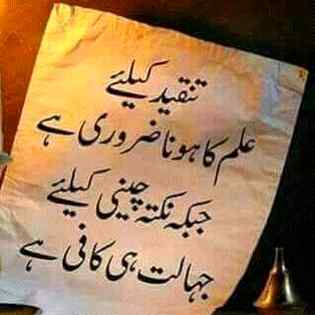 تنقید کیلئے
علم کا ہونا ضروری ہے
جبکہ نکتہ چینی کیلئے
جہالت ہی کافی ہے